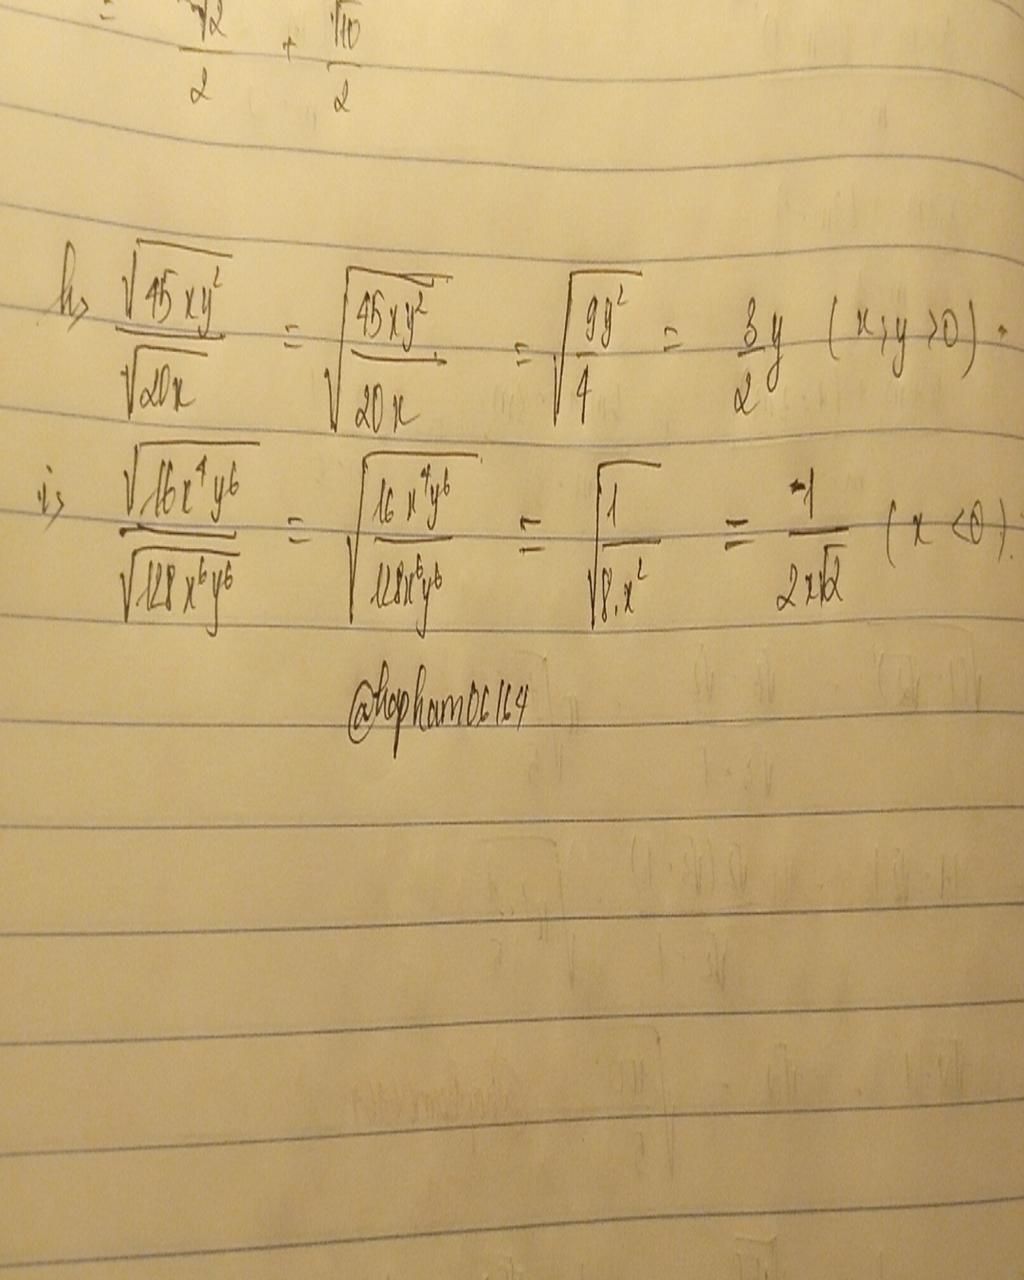 = √2/2 + √10/2
h, √(45xy²)/√(20x) = √(45xy²/20x) = √(9y²/4) = 3/2 y (x;y >0).
i, √(16x⁴y⁶)/√(128x⁶y⁶) = √(16x⁴y⁶/128x⁶y⁶) = √(1/8.x²) = -1/2x√2 (x <0).
@hopham06164